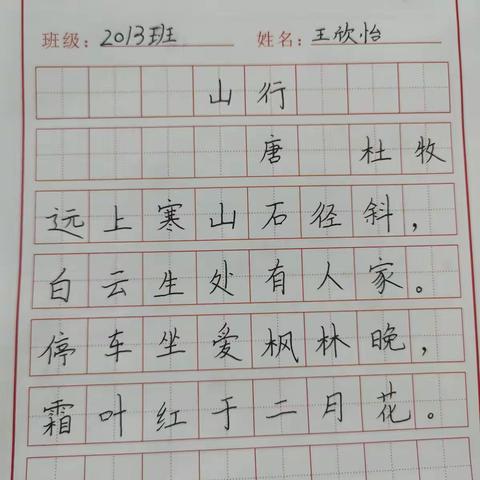 班级: 2013班 姓名: 王欣怡
山行
唐 杜牧
远上寒山石径斜，
白云生处有人家。
停车坐爱枫林晚，
霜叶红于二月花。